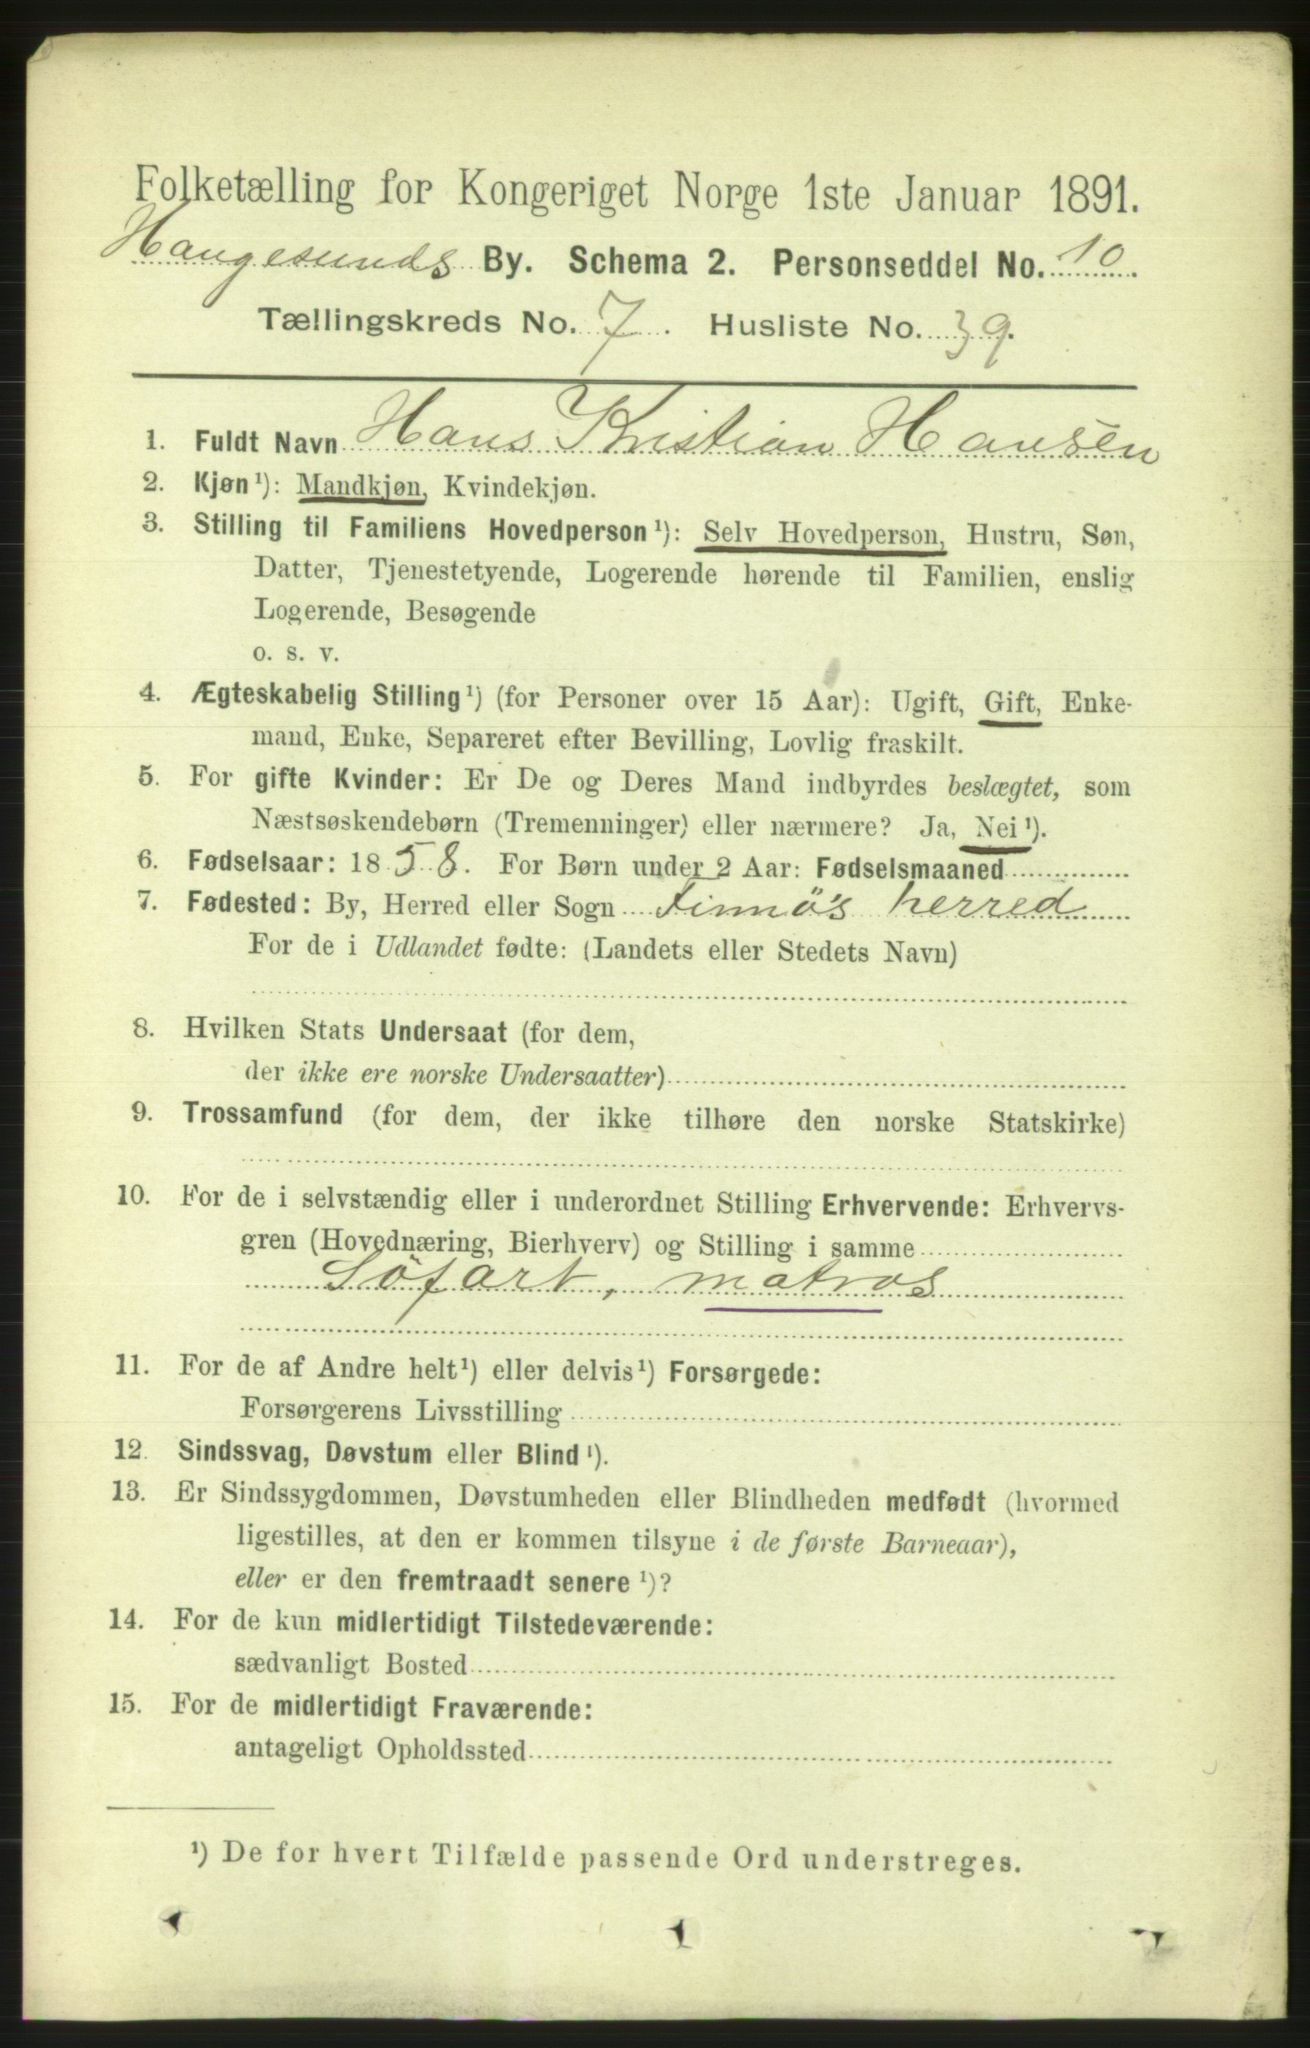 Folketælling for Kongeriget Norge 1ste Januar 1891.
Haugesunds By. Schema 2. Personseddel No. 10.
Tællingskreds No. 7. Husliste No. 39.
1. Fuldt Navn Hans Kristian Hansen
2. Kjøn¹): Mandkjøn, Kvindekjøn.
3. Stilling til Familiens Hovedperson¹): Selv Hovedperson, Hustru, Søn,
Datter, Tjenestetyende, Logerende hørende til Familien, enslig
Logerende, Besøgende
o. s. v.
4. Ægteskabelig Stilling¹) (for Personer over 15 Aar): Ugift, Gift, Enke-
mand, Enke, Separeret efter Bevilling, Lovlig fraskilt.
5. For gifte Kvinder: Er De og Deres Mand indbyrdes beslægtet, som
Næstsøskendebørn (Tremenninger) eller nærmere? Ja, Nei¹).
6. Fødselsaar: 1858. For Børn under 2 Aar: Fødselsmaaned
7. Fødested: By, Herred eller Sogn Finnö's herred
For de i Udlandet fødte: (Landets eller Stedets Navn)
8. Hvilken Stats Undersaat (for dem,
der ikke ere norske Undersaatter)
9. Trossamfund (for dem, der ikke tilhøre den norske Statskirke)
10. For de i selvstændig eller i underordnet Stilling Erhvervende: Erhvervs-
gren (Hovednæring, Bierhverv) og Stilling i samme
Söfart, matros
11. For de af Andre helt¹) eller delvis¹) Forsørgede:
Forsørgerens Livsstilling
12. Sindssvag, Døvstum eller Blind¹).
13. Er Sindssygdommen, Døvstumheden eller Blindheden medfødt (hvormed
ligestilles, at den er kommen tilsyne i de første Barneaar),
eller er den fremtraadt senere¹)?
14. For de kun midlertidigt Tilstedeværende:
sædvanligt Bosted
15. For de midlertidigt Fraværende:
antageligt Opholdssted
¹) De for hvert Tilfælde passende Ord understreges.